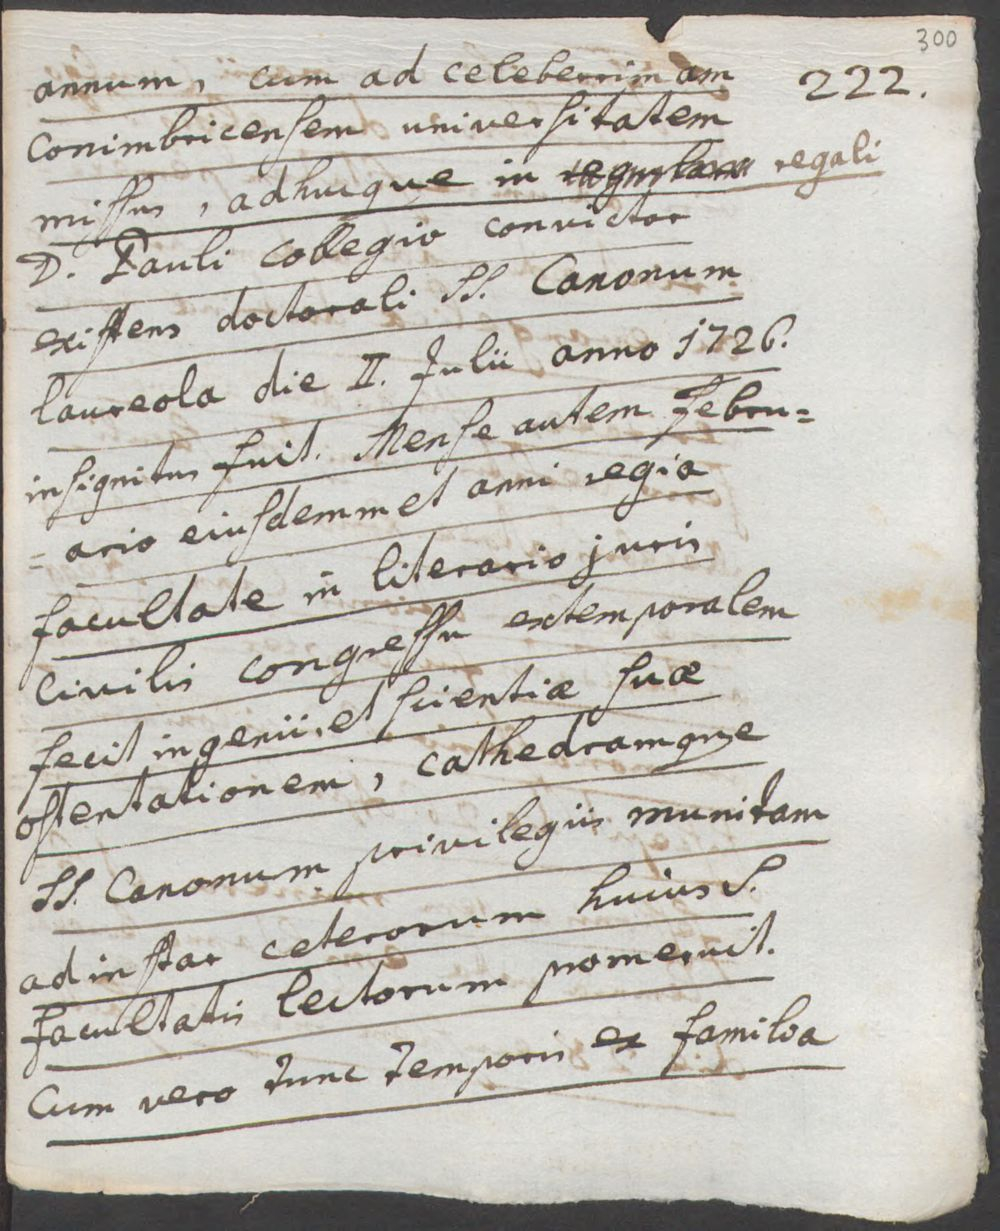 300
222.
annum, cum ad celeberrimam
Conimbricensem universitatem
missus, adhucque in regali
D. Pauli Collegio convictor
existens doctorali SS. Canonum
laureola die II. Julii anno 1726.
insignitus fuit. Mense autem Febru=
=ario eiusdemmet anni regia
facultate in literario juris
Civilis congressu extemporalem
fecit ingenii et scientiæ suæ
ostentationem, cathedramque
SS. Canonum privilegiis munitam
ad instar ceterorum huius S.
Facultatis lectorum promeruit.
Cum vero tunc temporis ex familia